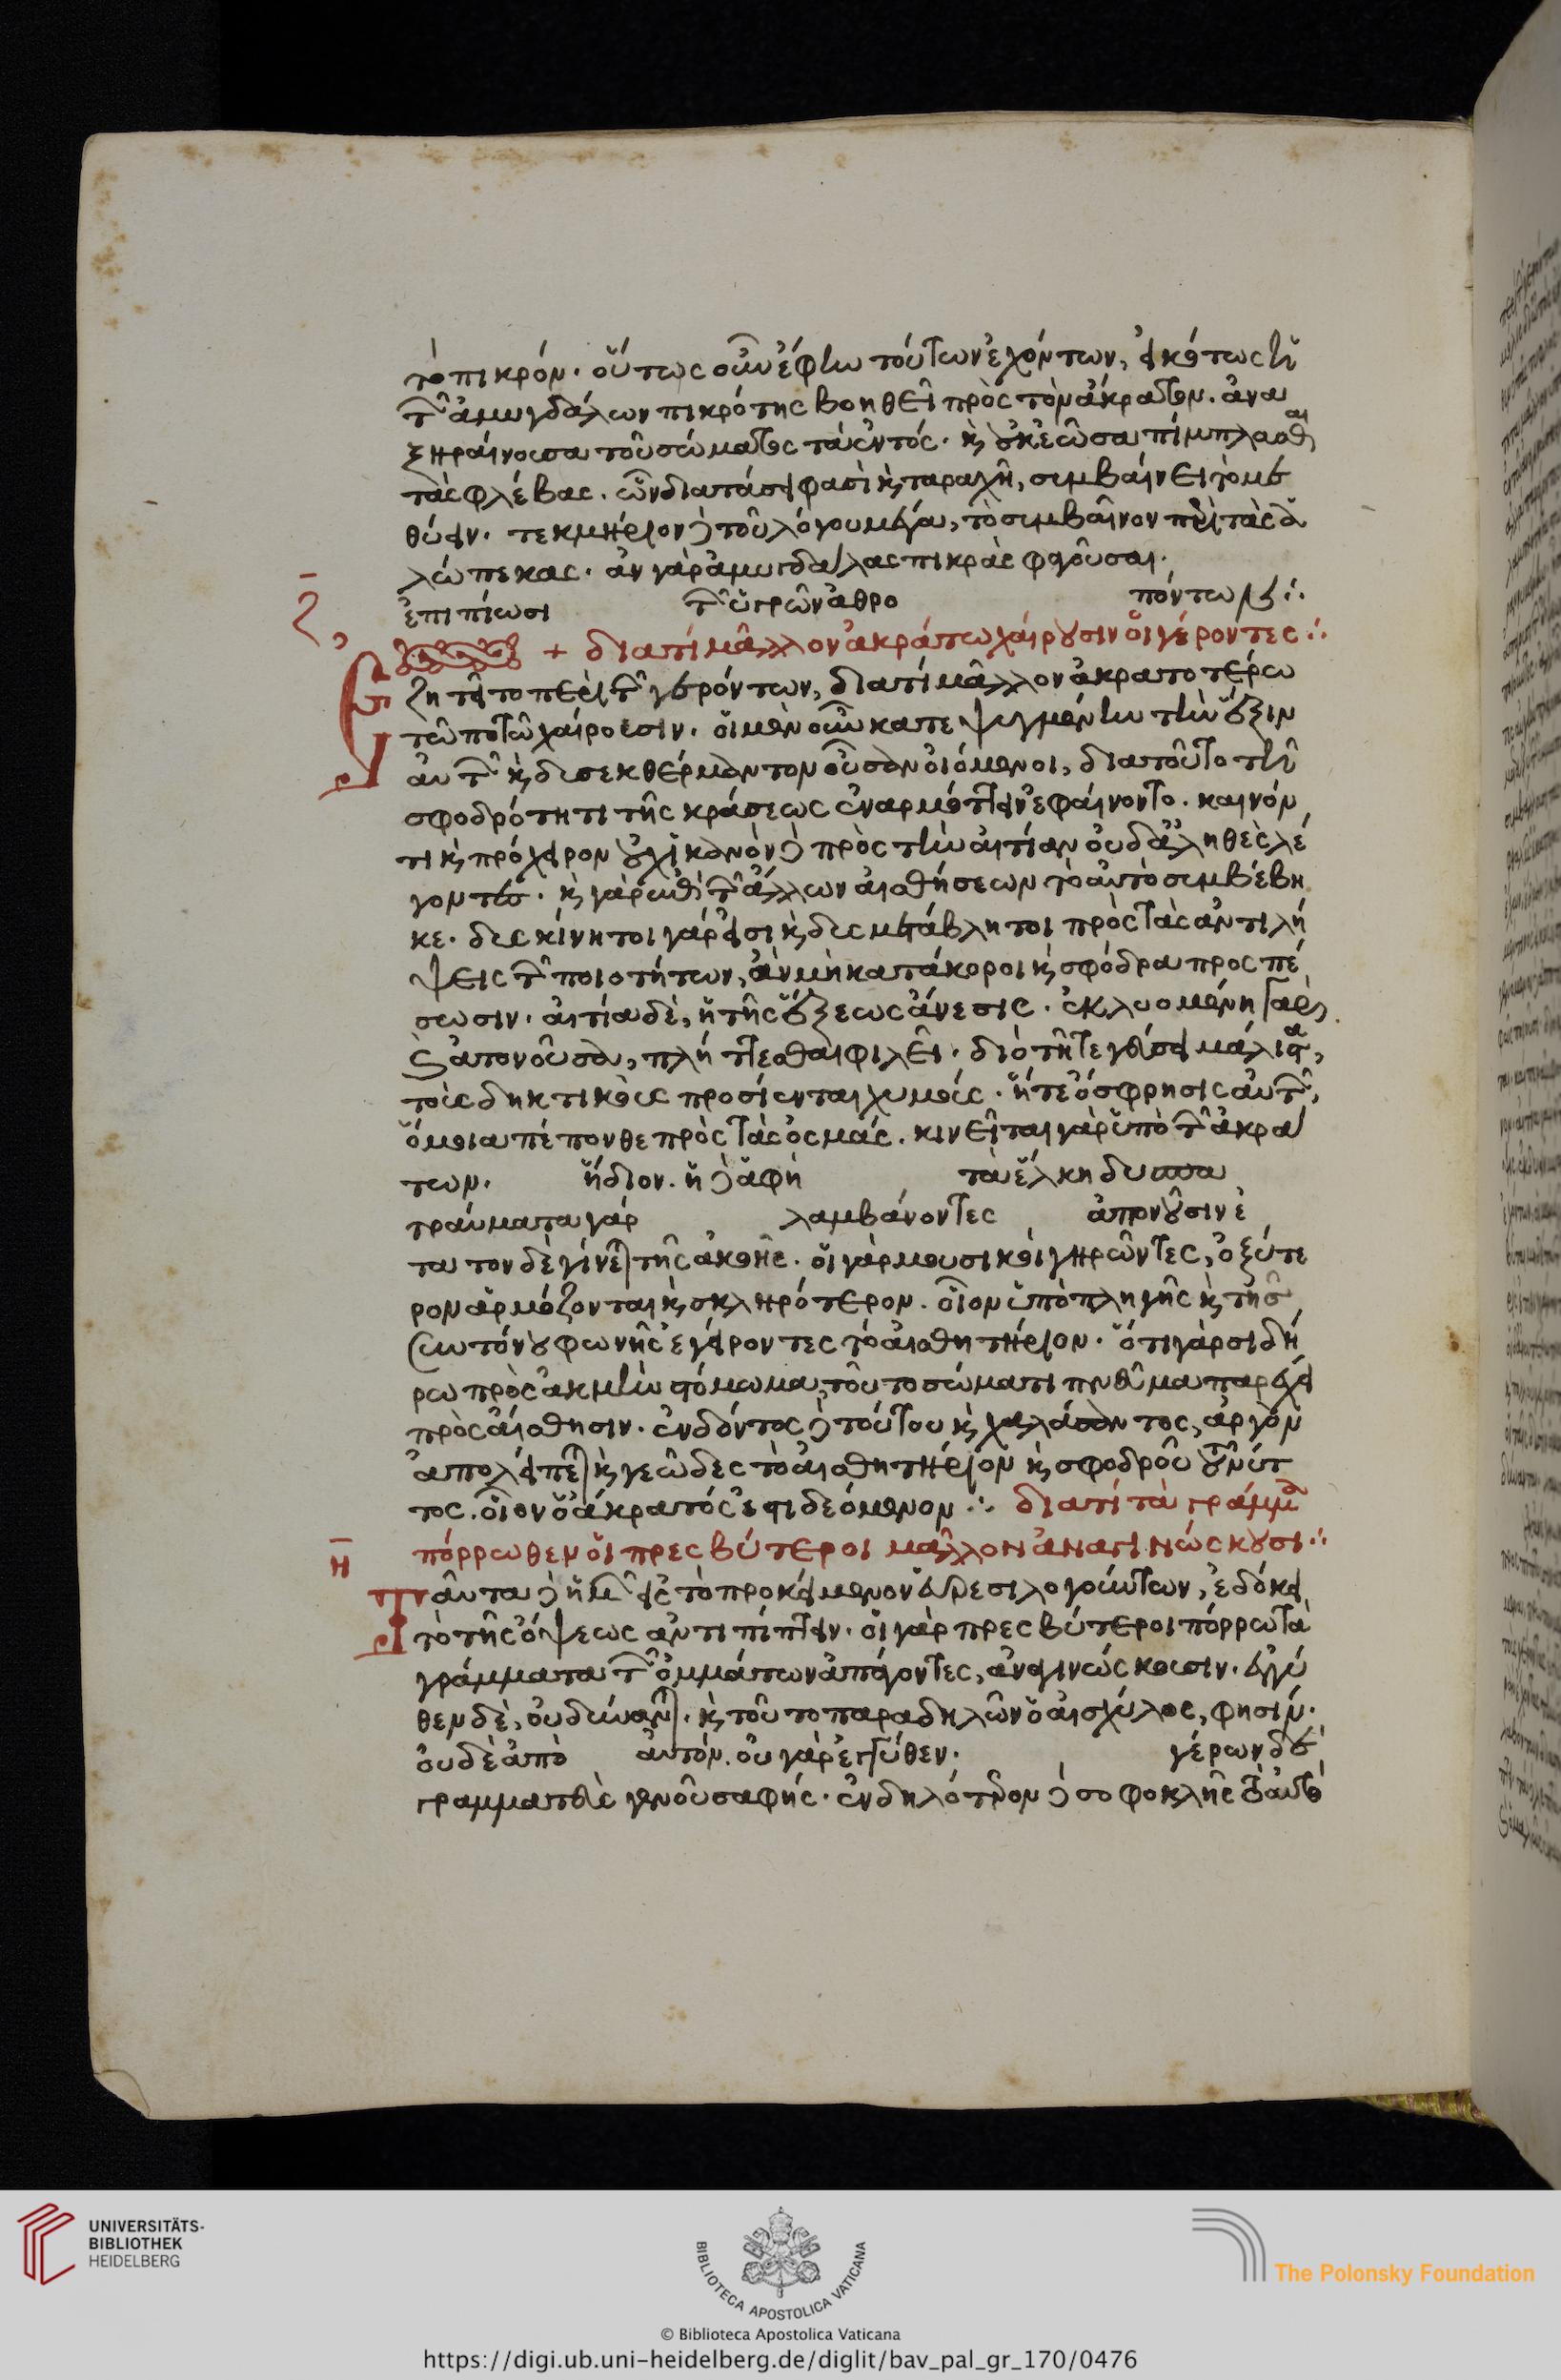 το πικρόν. οὕτως οὖν ἔφην τούτων ἐχόντων, εἰκότως ἡ
τῶν ἀμυγδάλων πικρότης βοηθεῖ πρὸς τὸν ἄκρατον. ἀνα
ξηραίνουσα τοῦ σώματος τὰ ἐντός. καὶ οὐκ ἐῶσα πίμπλασθαι
τὰς φλέβας. ὧν διατάσει φασὶ καὶ ταραχῆ, συμβαίνει τὸ με
θύειν. τεκμήριον δὲ τοῦ λόγου μέγα, τὸ συμβαῖνον περὶ τὰς ἀ
λώπεκας. ἂν γὰρ ἀμυγδάλας πικρὰς φαγοῦσαι.
ἐπιπίωσι τῶν ὑγρῶν ἀθρο πόντων
ζ
+ διατί μᾶλλον ἀκράτω χαίρουσιν οἱ γέροντες
Ἐζητεῖτο περὶ τῶν γερόντων, διατί μᾶλλον ἀκρατοτέρω
τῶ ποτῶ χαίρουσιν. οἱ μὲν οὖν κατεψυγμένην τὴν ἕξιν
αὐτῶν καὶ δυσεκθέρμαντον οὖσαν οἰόμενοι, διατοῦτο τῆ
σφοδρότητι τῆς κράσεως ἐναρμόττειν ἐφαίνοντο. καινόν
τι καὶ πρόχειρον οὐχ ἱκανὸν δὲ πρὸς τὴν αἰτίαν οὐδ ἀληθὲς λέ
γοντες. καὶ γὰρ ἐπὶ τῶν ἄλλων αἰσθήσεων τὸ αὐτὸ συμβέβη
κε. δυσκίνητοι γάρ εἰσι καὶ δυσμετάβλητοι πρὸς τὰς ἀντιλή
ψεις τῶν ποιοτήτων, ἂν μὴ κατάκοροι καὶ σφόδρα προσπέ
σωσιν. αἰτία δὲ, ἡ τῆς ἕξεως ἄνεσις. ἐκλυομένη γὰρ
καὶ ἀτονοῦσα, πλήττεσθαι φιλεῖ. διὸ τῆ τε γεύσει μάλιστα,
τοὺς δηκτικοὺς προσίενται χυμούς. ἥ τε ὄσφρησις αὐτῶν,
ὅμοια πέπονθε πρὸς τὰς ὀσμάς. κινεῖται γὰρ ὑπὸ τῶν ἀκρά
των. ἥδιον. ἡ δὲ ἁφὴ τὰ ἕλκη δυσπα
τραύματα γάρ λαμβάνοντες ἀπονοῦσιν ἐ
τατον δὲ γίνεται τῆς ἀκοῆς. οἱ γὰρ μουσικοὶ γηρῶντες, ὀξύτε
ρον ἁρμόζονται καὶ σκληρότερον. οἷον ὑπὸ πληγῆς καὶ τῆς
συντόνου φωνῆς ἐγείροντες τὸ αἰσθητήριον. ὅτι γὰρ σιδή
ρω πρὸς ἀκμὴν στόμωμα, τοῦτο σώματι πνεῦμα παρέχει
πρὸς αἴσθησιν. ἐνδόντος δὲ τούτου καὶ χαλάσαντος, ἀργὸν
ἀπολείπεται καὶ γεῶδες τὸ αἰσθητήριον καὶ σφοδροῦ τοῦ νύτ
τος. οἷον ὁ ἄκρατός ἐστι δεόμενον ∴ διατί τὰ γράμματα
η πόρρωθεν οἱ πρεσβύτεροι μᾶλλον ἀναγινώσκουσι
Ταῦτα δὲ ἡμῶν εἰς τὸ προκείμενον εὑρεσιλογούντων, ἐδόκει
τὸ τῆς ὄψεως ἀντιπίπτειν. οἱ γὰρ πρεσβύτεροι πόρρω τὰ
γράμματα τῶν ὀμμάτων ἀπάγοντες, ἀναγινώσκουσιν. ἐγγύ
θεν δὲ, οὐ δύνανται. καὶ τοῦτο παραδηλῶν ὁ αἰσχύλος, φησίν.
οὐδὲ ἀπὸ αὐτόν. οὐ γὰρ ἐγγύθεν. γέρων δὲ
γραμματεὺς γενοῦ σαφής. ἐνδηλότερον δὲ σοφοκλῆς τὸ αὐτὸ
UNIVERSITÄTS-
BIBLIOTHEK
HEIDELBERG
BIBLIOTECA APOSTOLICA VATICANA
The Polonsky Foundation
© Biblioteca Apostolica Vaticana
https://digi.ub.uni-heidelberg.de/diglit/bav_pal_gr_170/0476